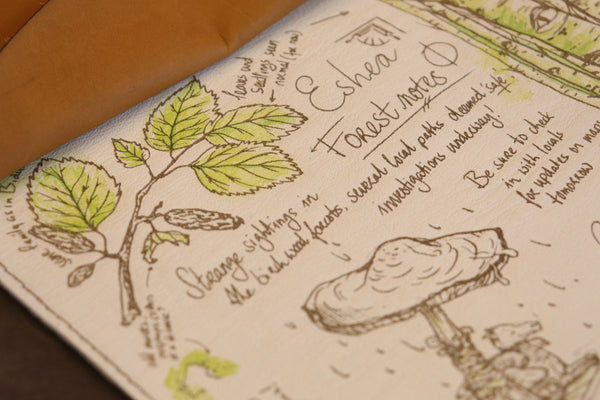 leaves and
seedlings seem
normal (for now)
Eshea
Forest notes
Strange sightings in
the birch wood forests, several local paths deemed 'safe'
investigations underway!
Be sure to check
in with locals
for updates on map
tomorrow